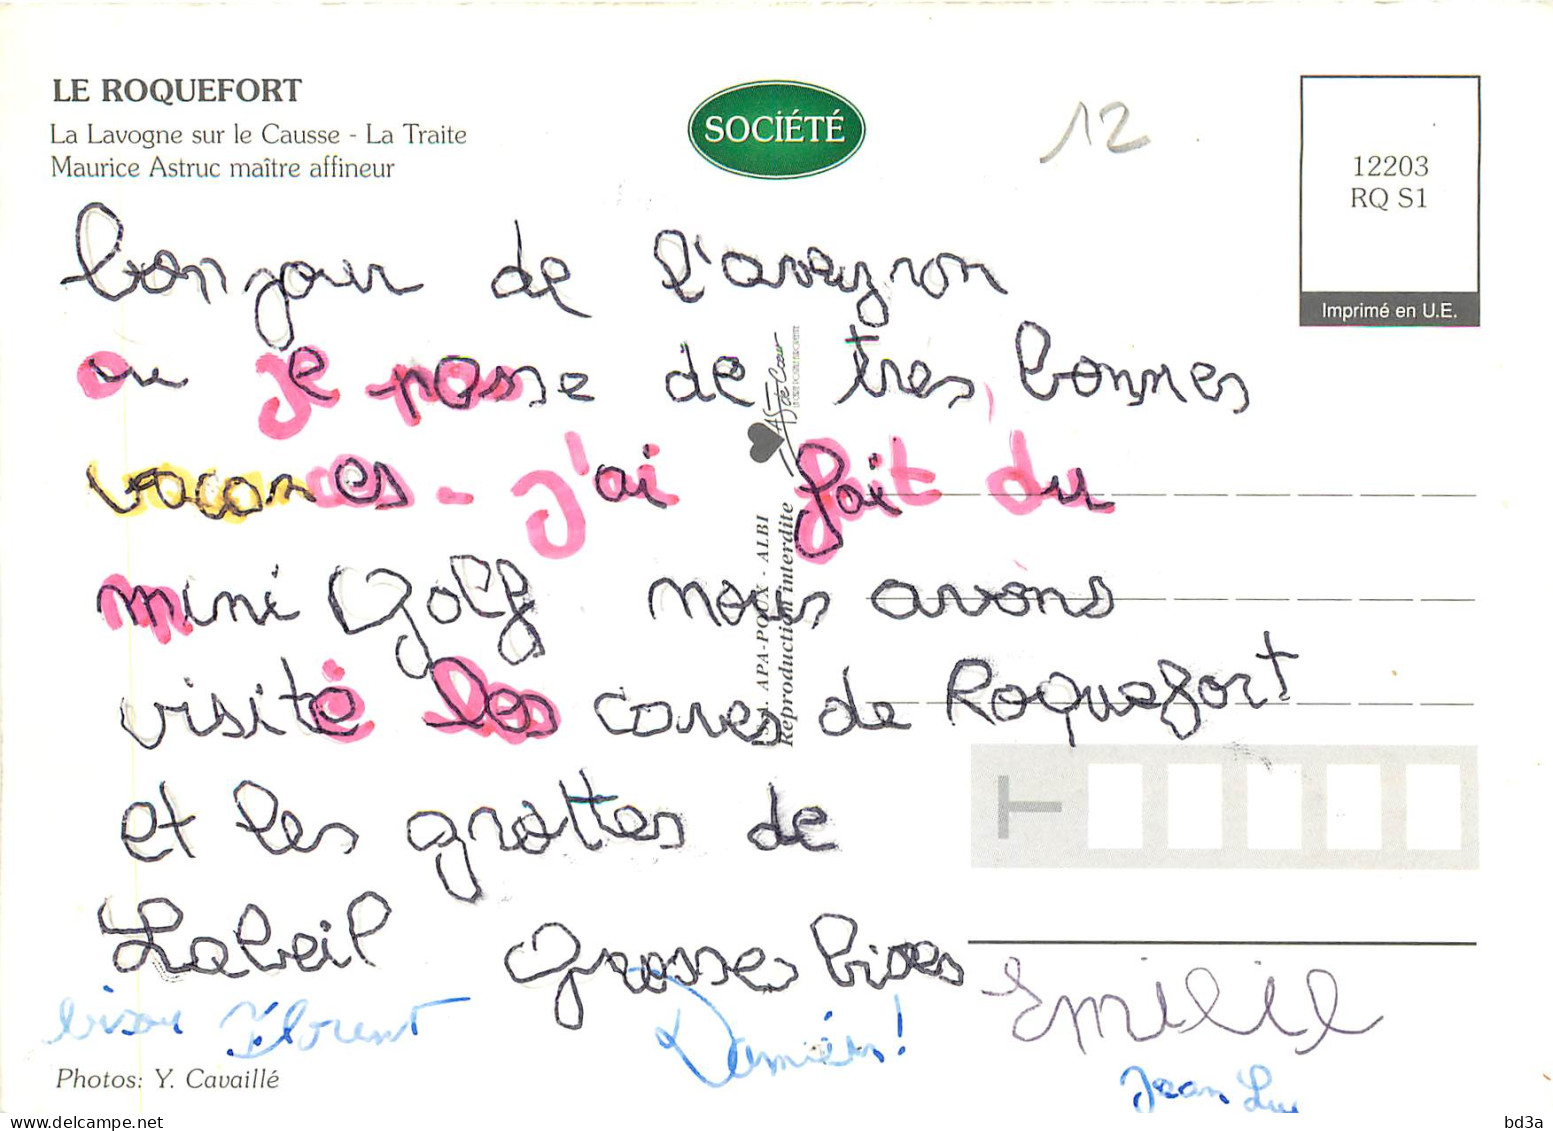 LE ROQUEFORT
La Lavogne sur le Causse - La Traite
Maurice Astruc maître affineur
SOCIÉTÉ
12
12203
RQ S1
Imprimé en U.E.
bonjour de l'aveyron
ou je passe de tres bonnes
vacances - j'ai fait du
mini Golf nous avons
visité les caves de Roquefort
et les grottes de
Labeil Grosses bises
Emilie
bisou Florent Damien!
Jean Luc
As de Cœur
APA-POUX - ALBI
Reproduction interdite
T
Photos: Y. Cavaillé
bd3a